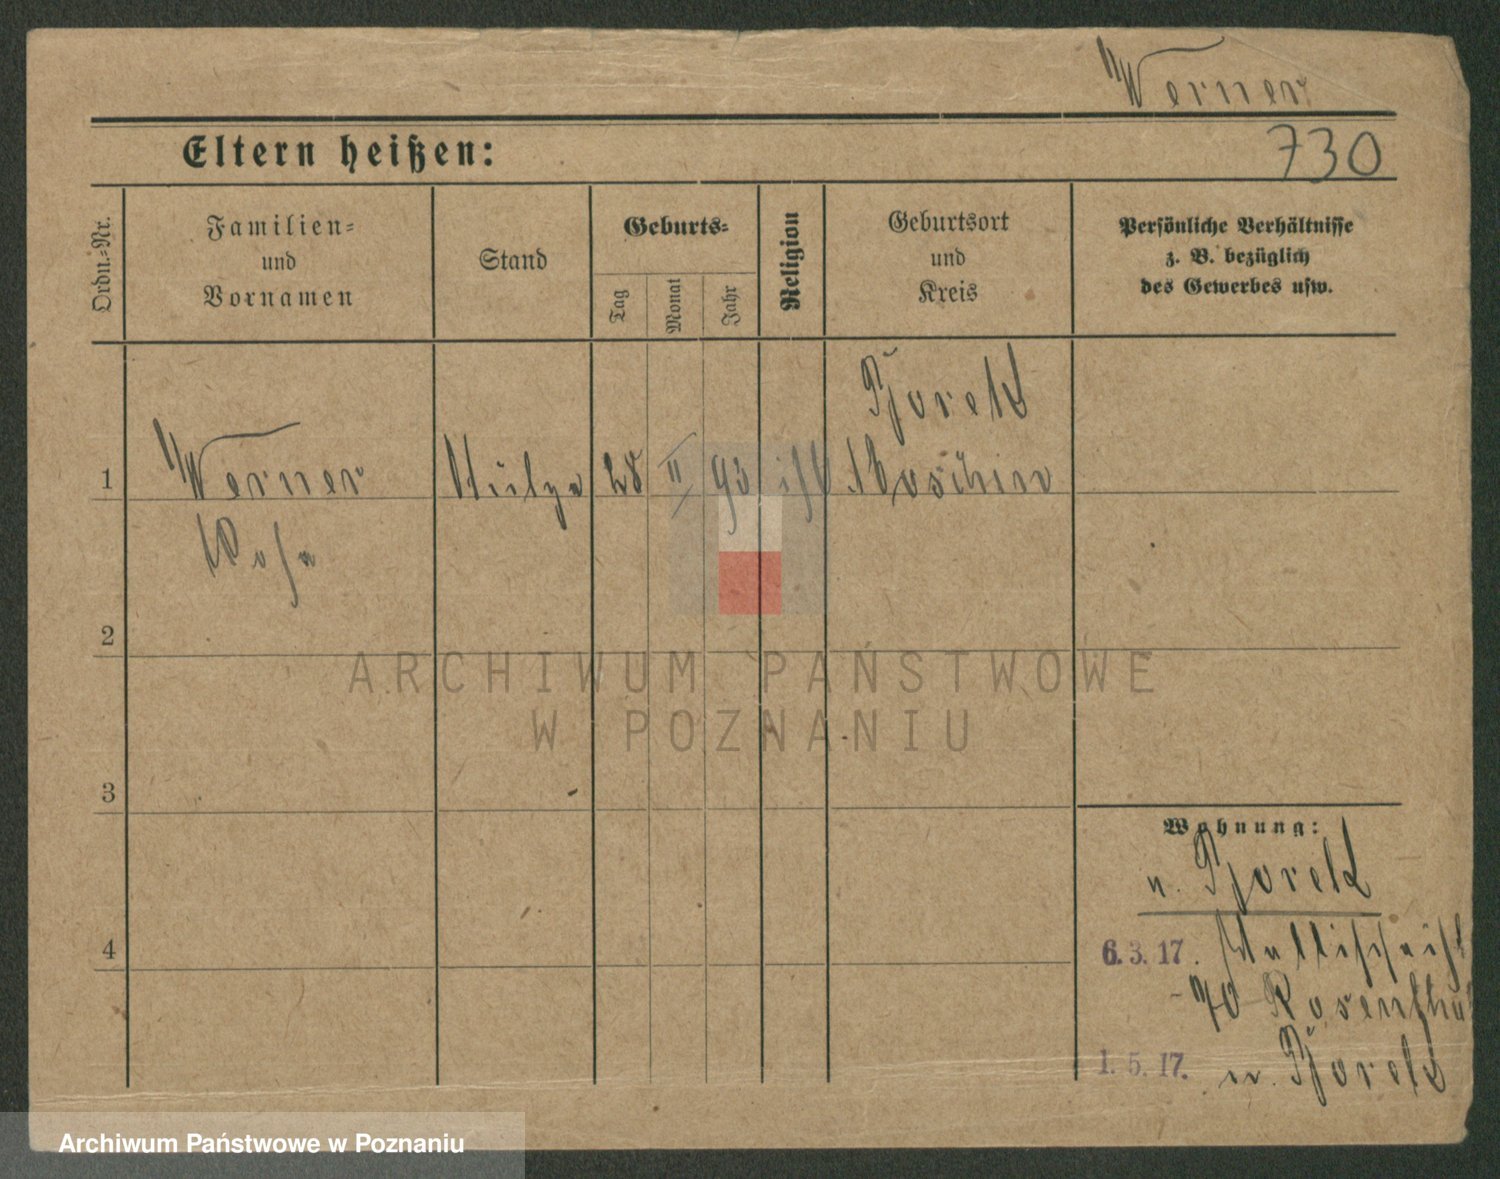 Werner
Eltern heißen:
730
Ordn.-Nr.
Familien-
und
Vornamen
Stand
Geburts-
Tag
Monat
Jahr
Religion
Geburtsort
und
Kreis
Persönliche Verhältnisse
z. B. bezüglich
des Gewerbes usw.
1
Werner
Rosa
Stütze
28
II
93
isr
Moschin
2
3
4
Wohnung:
n.
6.3.17. Wallischei
70 Rosenthal
1.5.17. n.
ARCHIWUM PAŃSTWOWE
W POZNANIU
Archiwum Państwowe w Poznaniu